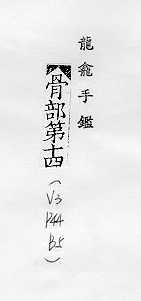 龍龕手鑑
骨部第十四
(V3
P44
B5)